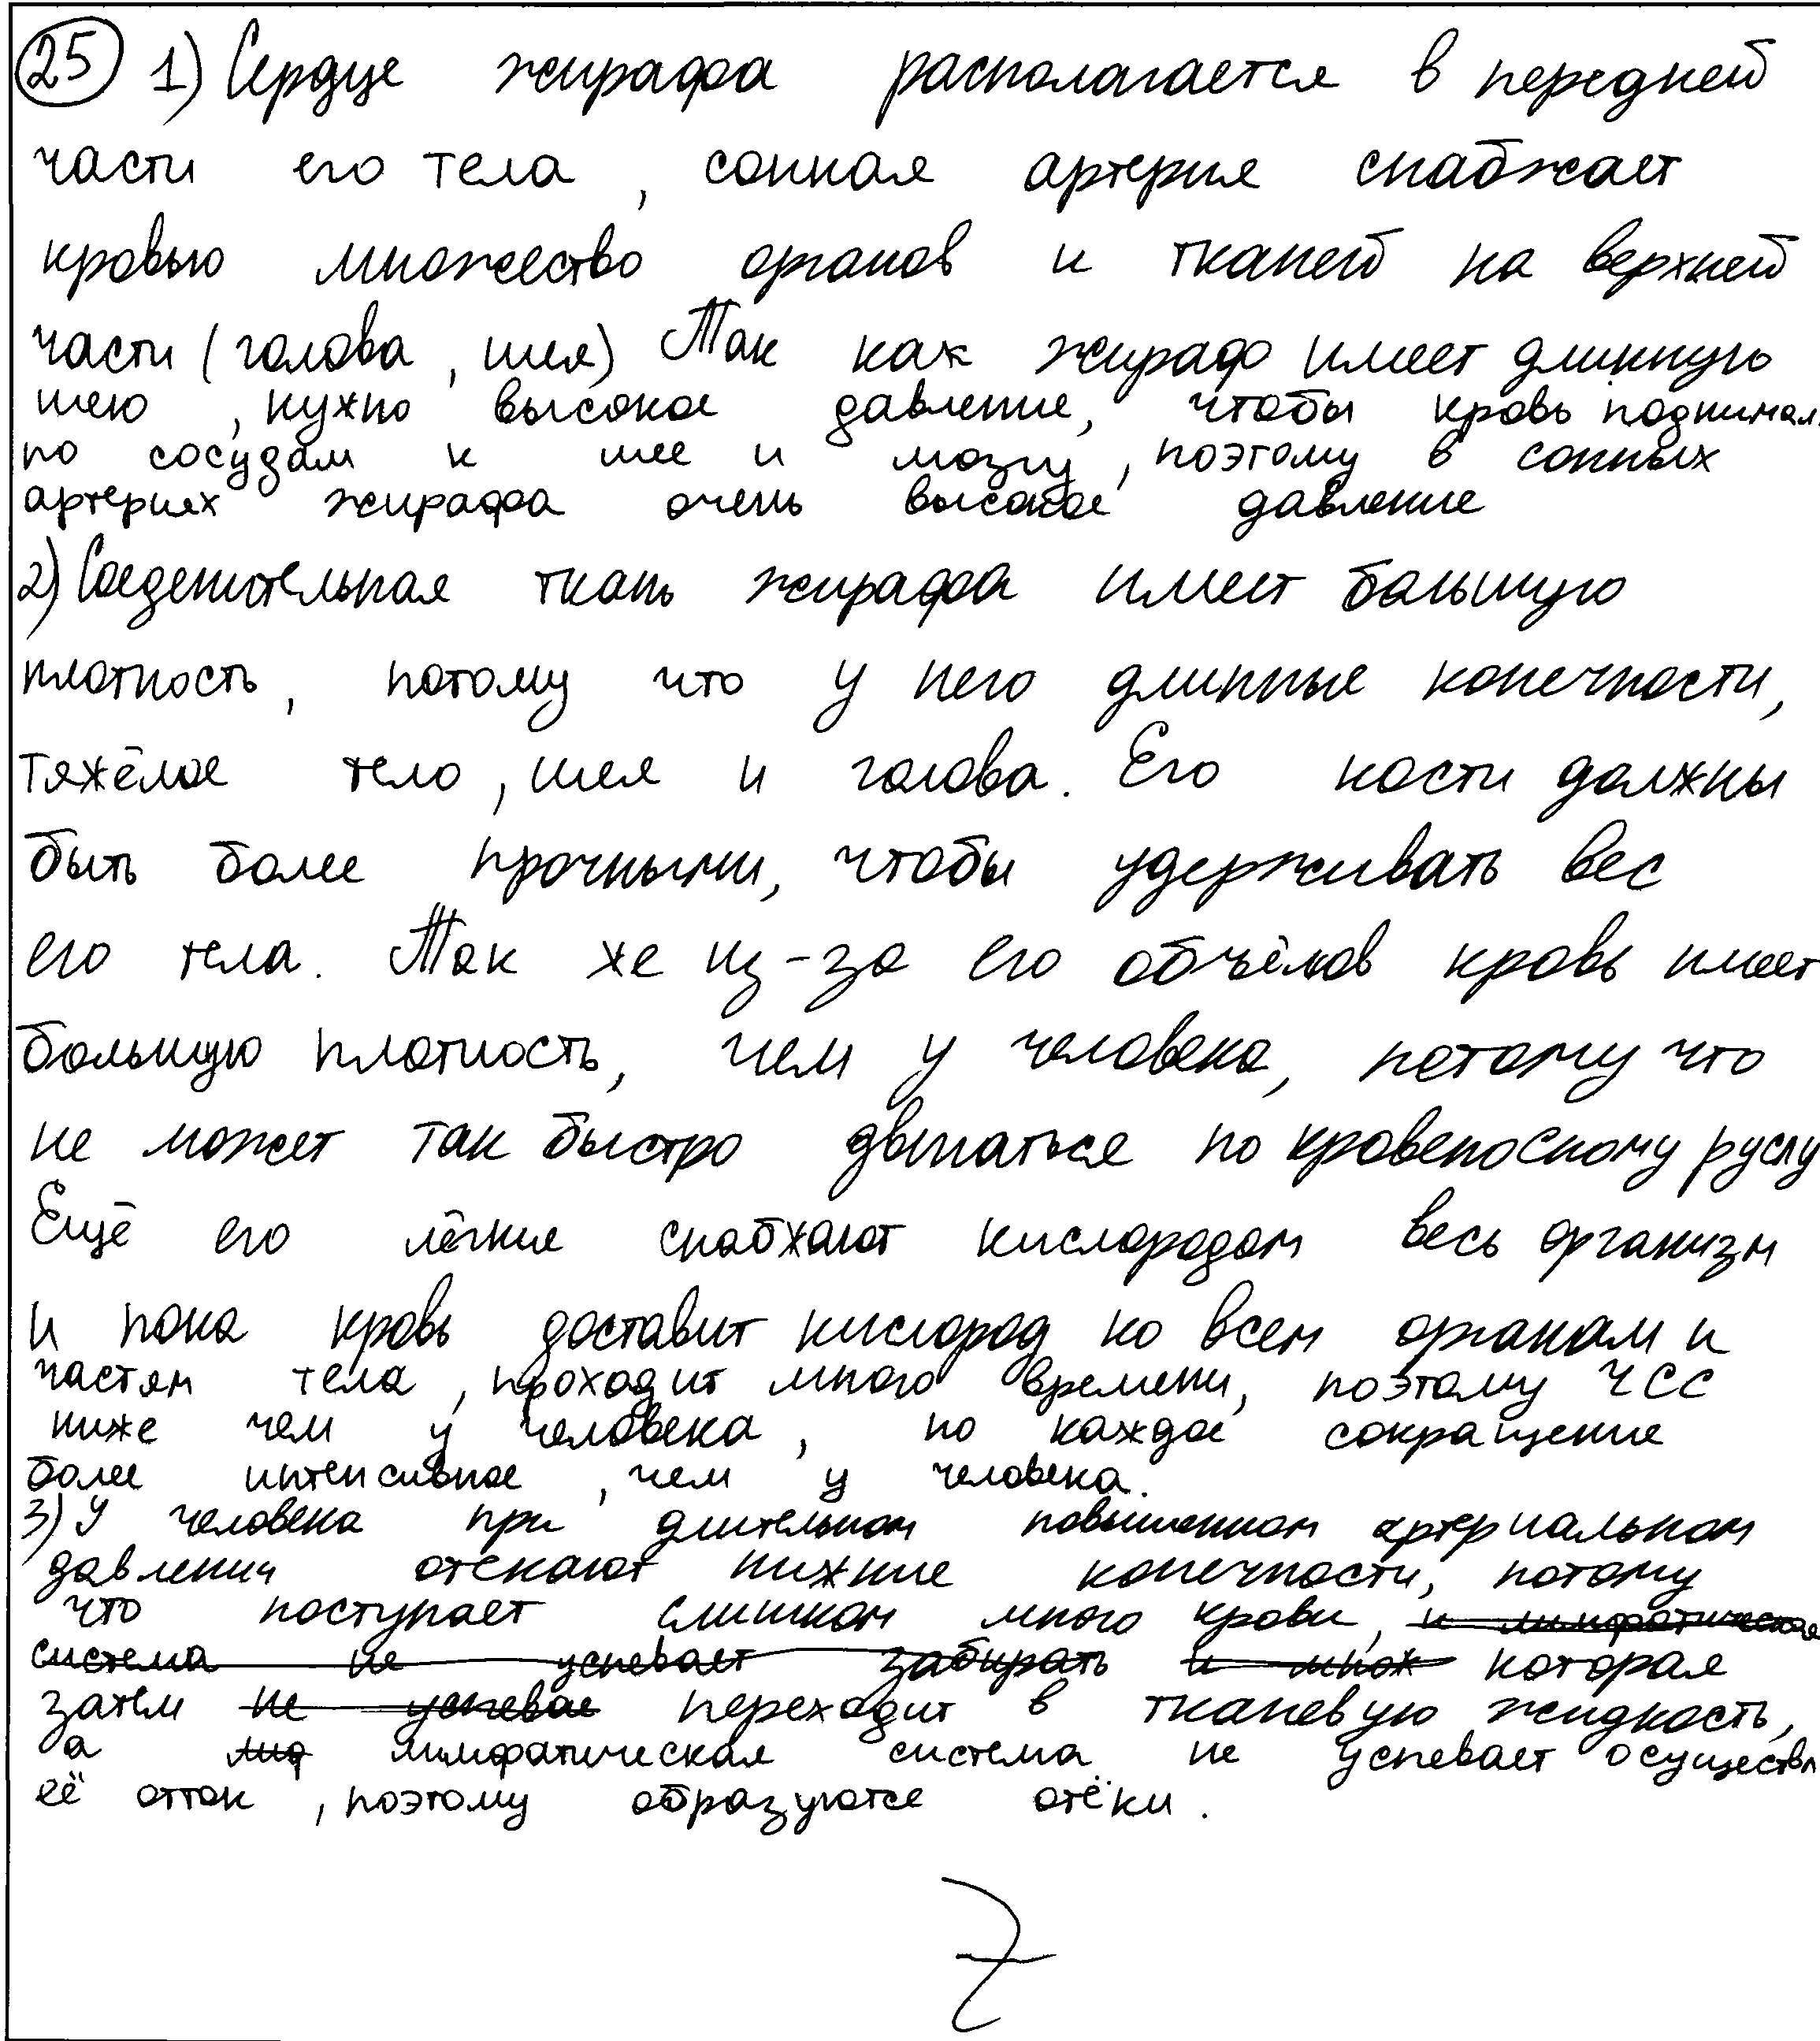 25 1) Сердце жирафа располагается в передней
части его тела, сонная артерия снабжает
кровью множество органов и тканей на верхней
части (голова, шея) Так как жираф имеет длинную
шею, нужно высокое давление, чтобы кровь поднимал
по сосудам к шее и мозгу, поэтому в сонных
артериях жирафа очень высокое давление
2) Соеденительная ткань жирафа имеет большую
плотность, потому что у него длинные конечности,
тяжёлое тело, шея и голова. Его кости должны
быть более прочными, чтобы удерживать вес
его тела. Так же из-за его объёмов кровь имеет
большую плотность, чем у человека, потому что
не может так быстро двигаться по кровеносному руслу
Ещё его лёгкие снабжают кислородом весь организм
и пока кровь доставит кислород ко всем органам и
частям тела, проходит много времени, поэтому ЧСС
ниже чем у человека, но каждое сокращение
более интенсивное, чем у человека.
3) У человека при длительном повышенном артериальном
давлении отекают нижние конечности, потому
что поступает слишком много крови, и лимфатическая
система не успевает забирать и множ которая
затем не успевае переходит в тканевую жидкость,
а лиф лимфатическая система не успевает осуществл
её отток, поэтому образуются отёки.